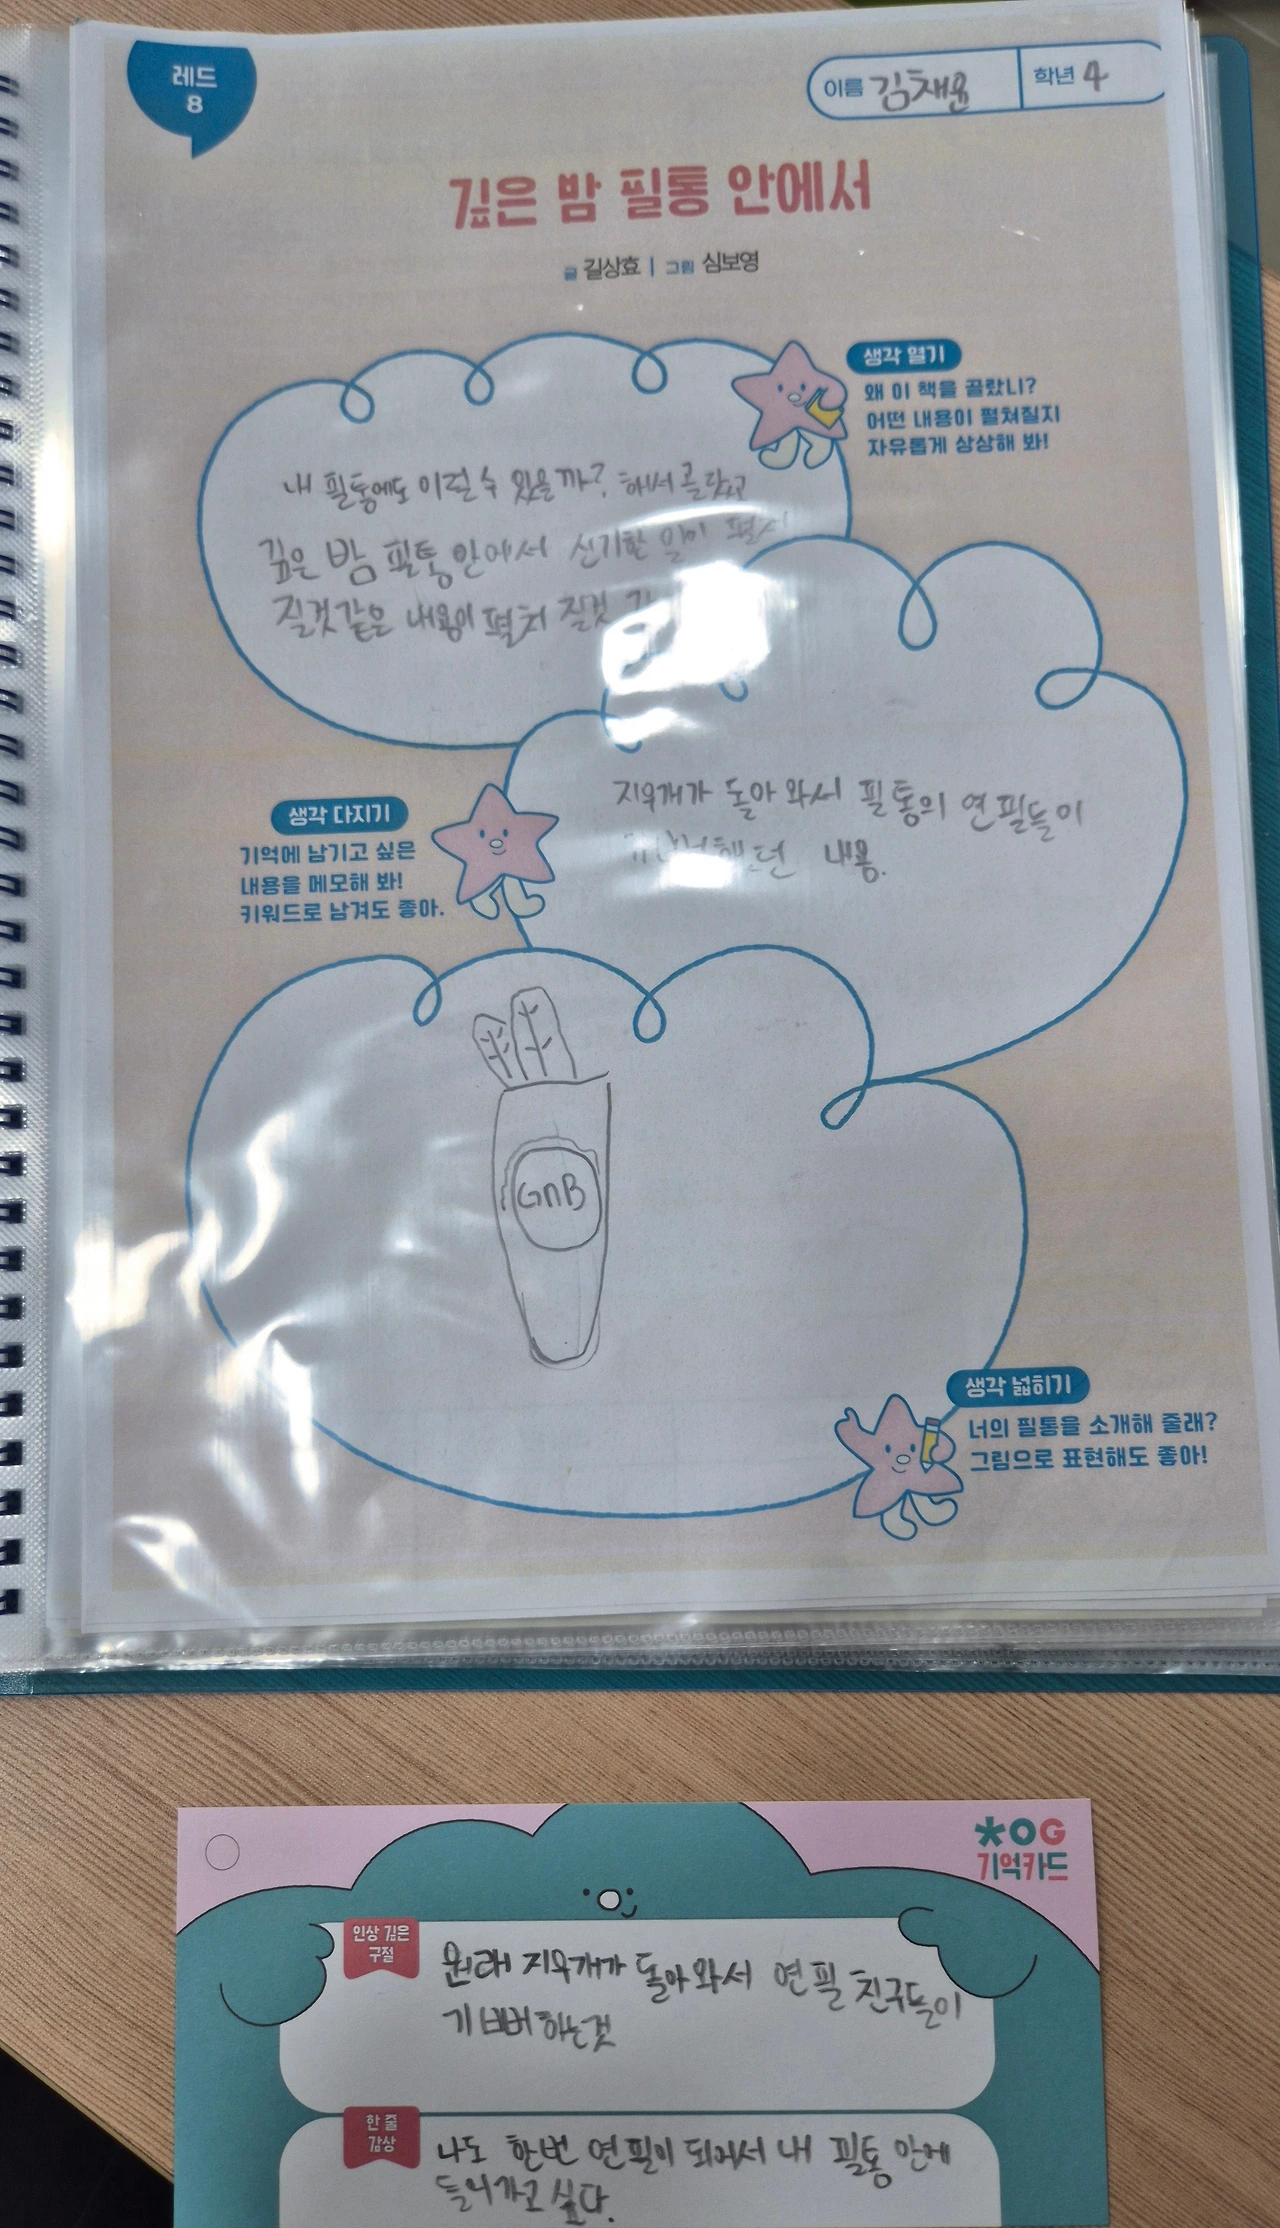 레드
8
이름 김채윤 학년 4
깊은 밤 필통 안에서
글 길상효 | 그림 심보영
생각 열기
왜 이 책을 골랐니?
어떤 내용이 펼쳐질지
자유롭게 상상해 봐!
내 필통에도 이럴 수 있을까? 해서 골랐고
깊은 밤 필통 안에서 신기한 일이 펼쳐
질것같은 내용이 펼쳐 질것
생각 다지기
기억에 남기고 싶은
내용을 메모해 봐!
키워드로 남겨도 좋아.
지우개가 돌아 와서 필통의 연필들이
내용.
GnB
생각 넓히기
너의 필통을 소개해 줄래?
그림으로 표현해도 좋아!
기억카드
인상 깊은
구절
원래 지우개가 돌아 와서 연필 친구들이
기뻐 하는것
한 줄
감상
나도 한번 연필이 되어서 내 필통 안에
들어가고 싶다.